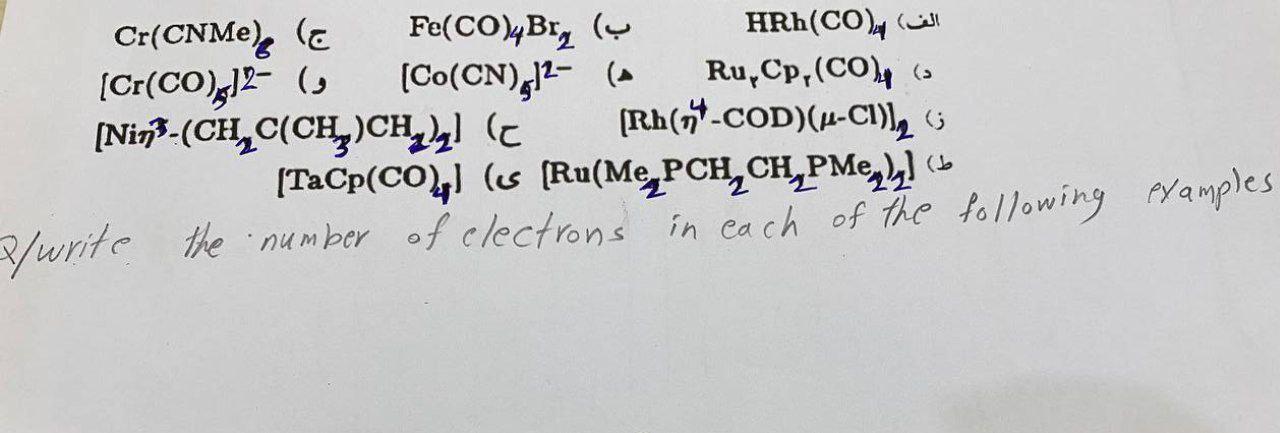 الف) HRh(CO)4 ب) Fe(CO)4Br2 ج) Cr(CNMe)6
د) Ru۲Cp۲(CO)4 ه) [Co(CN)5]2− و) [Cr(CO)5]2−
ز) [Rh(η4-COD)(μ-Cl)]2 ح) [Niη3-(CH2C(CH3)CH2)2]
ط) [Ru(Me2PCH2CH2PMe2)2] ی) [TaCp(CO)4]
Q/write the number of electrons in each of the following examples